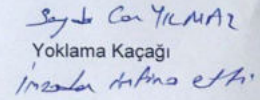 Seyda Can YILMAZ
Yoklama Kaçağı
imzadan imtina etti